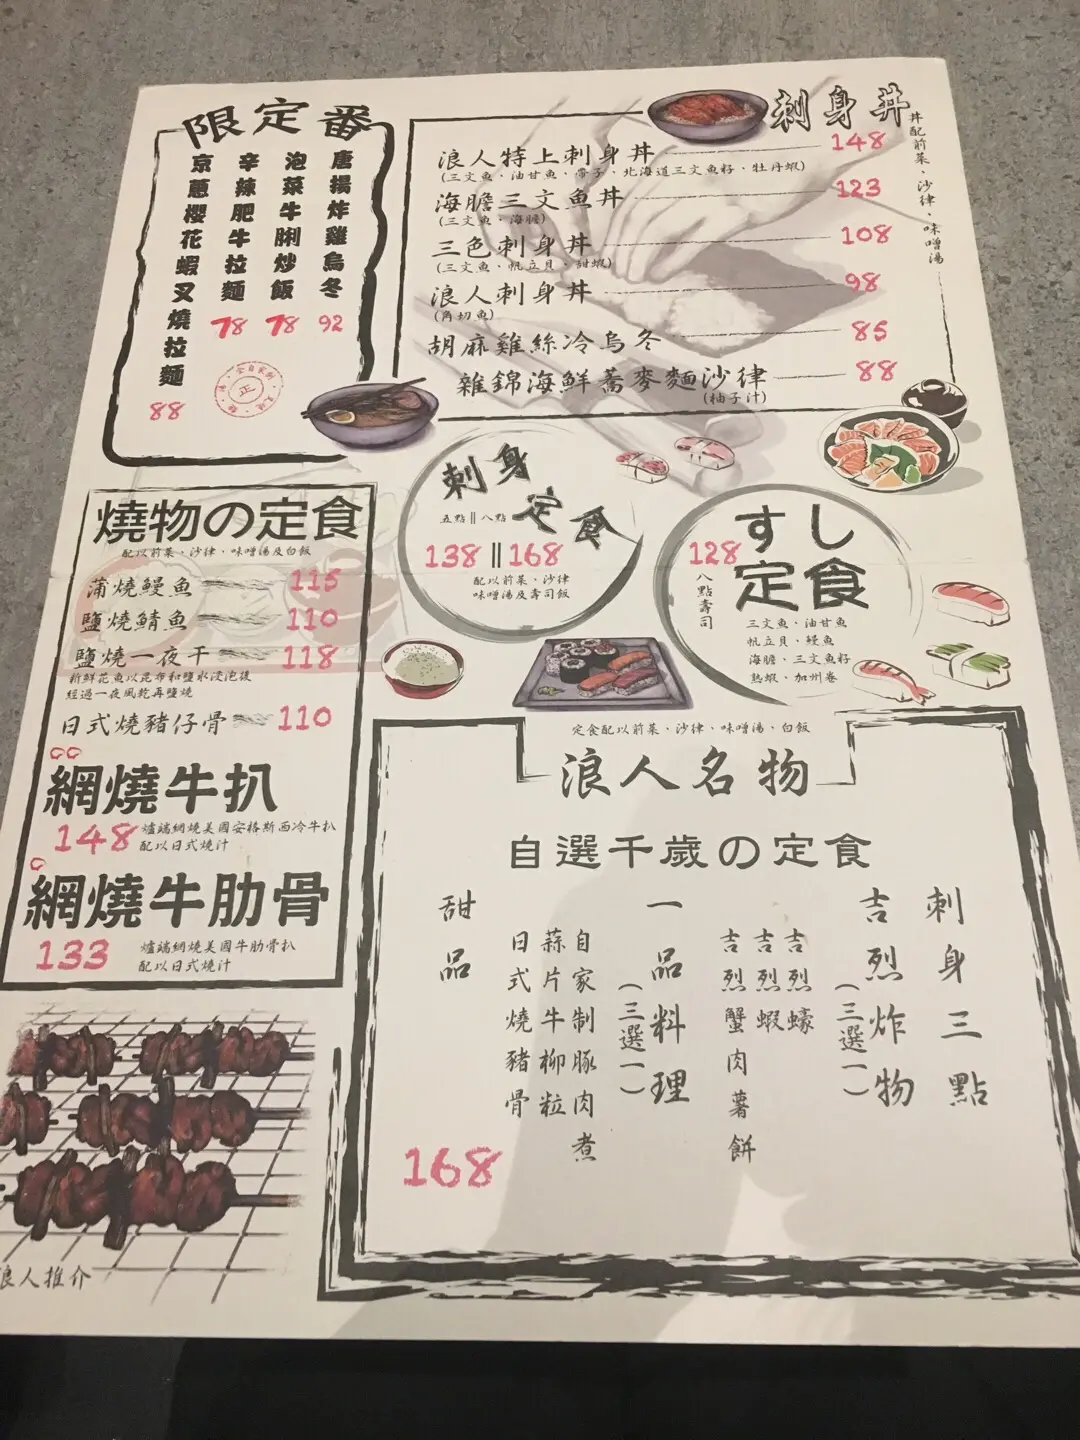 限定番
唐揚炸雞烏冬
92
泡菜牛脷炒飯
78
辛辣肥牛拉麵
78
京蔥櫻花蝦叉燒拉麵
88
刺身丼
丼配前菜、沙律、味噌湯
浪人特上刺身丼 148
(三文魚、油甘魚、帶子、北海道三文魚籽、牡丹蝦)
海膽三文魚丼 123
(三文魚、海膽)
三色刺身丼 108
(三文魚、帆立貝、甜蝦)
浪人刺身丼 98
(角切魚)
胡麻雞絲冷烏冬 85
雜錦海鮮蕎麥麵沙律 88
(柚子汁)
燒物の定食
配以前菜、沙律、味噌湯及白飯
蒲燒鰻魚 115
鹽燒鯖魚 110
鹽燒一夜干 118
新鮮花魚以昆布和鹽水浸泡後
經過一夜風乾再鹽燒
日式燒豬仔骨 110
網燒牛扒
148 爐端網燒美國安格斯西冷牛扒
配以日式燒汁
網燒牛肋骨
133 爐端網燒美國牛肋骨扒
配以日式燒汁
浪人推介
刺身定食
五點||八點
138 || 168
配以前菜、沙律
味噌湯及壽司飯
すし定食
128
八點壽司
三文魚、油甘魚
帆立貝、鰻魚
海膽、三文魚籽
熟蝦、加州卷
定食配以前菜、沙律、味噌湯、白飯
浪人名物
自選千歲の定食
刺身三點
吉烈炸物
(三選一)
吉烈蠔
吉烈蝦
吉烈蟹肉薯餅
一品料理
(三選一)
自家制豚肉煮
蒜片牛柳粒
日式燒豬骨
甜品
168